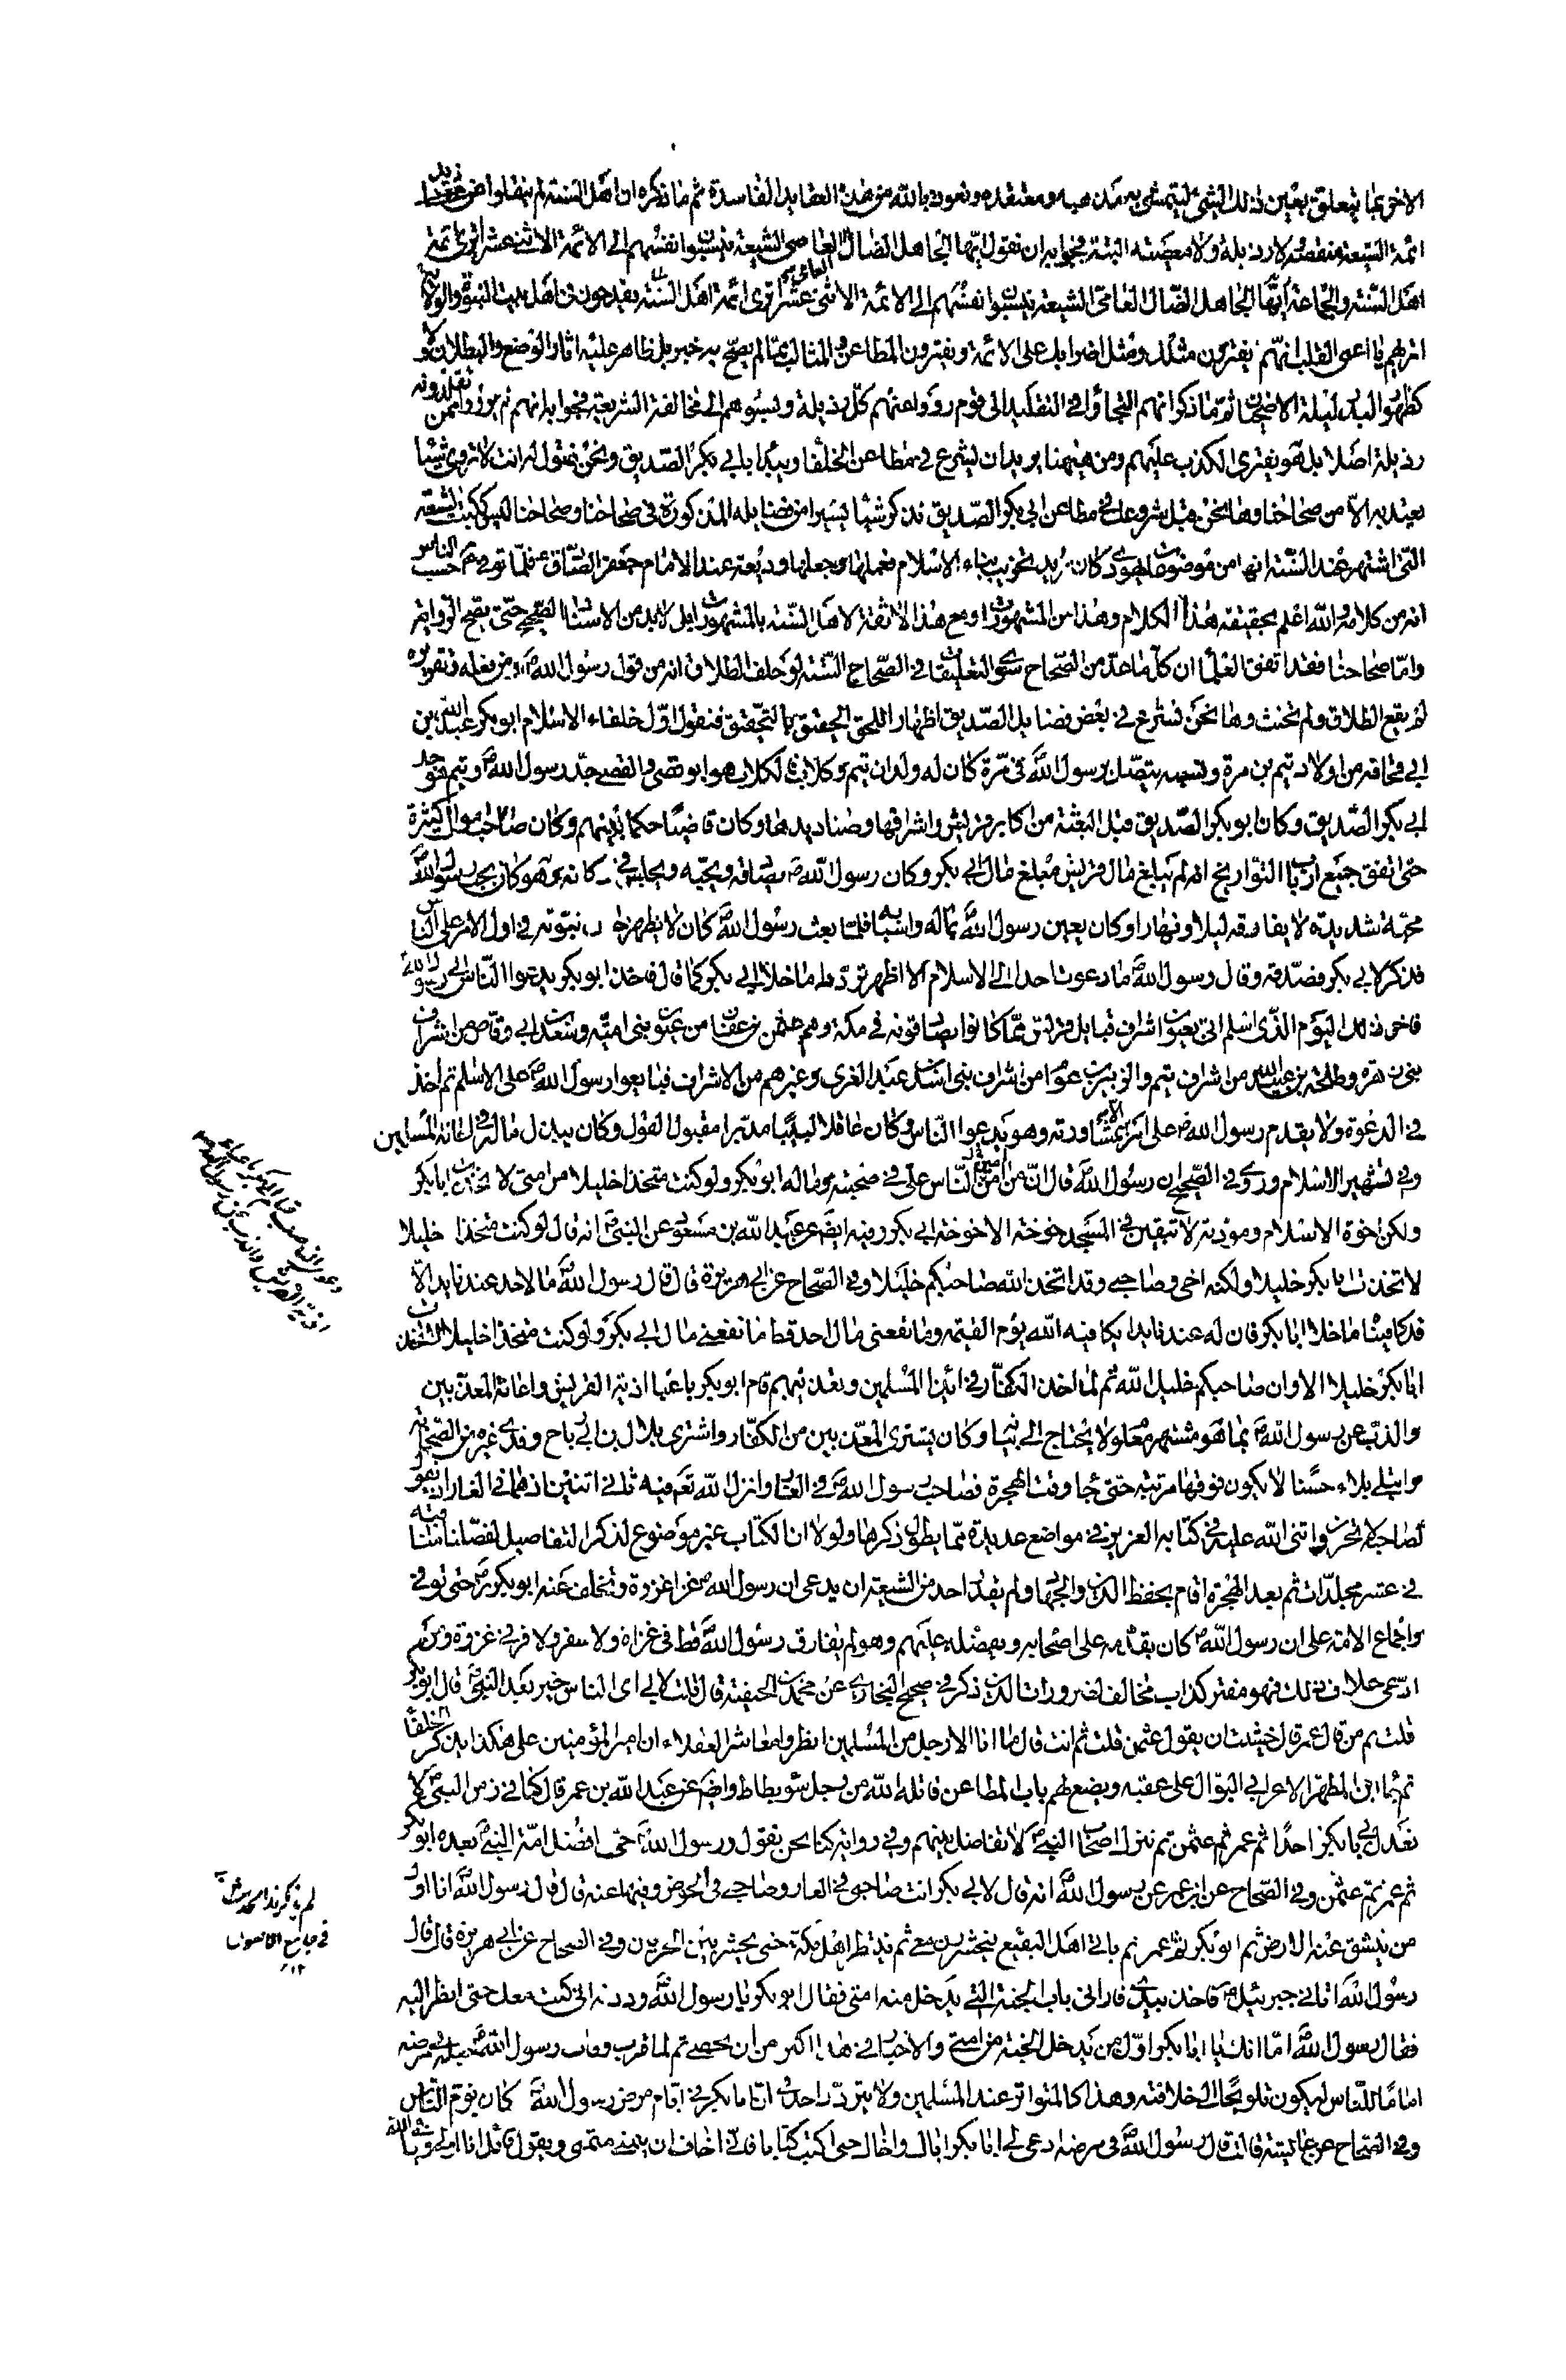 الاخر بما يتعلق بعين ذلك الشئ ليتمشى به مذهبه ومعتقده ونعوذ بالله من هذه العقايد الفاسدة ثم ما ذكره ان اهل السنة لم ينقلوا عن
ائمة الشيعة منقصة ولا رذيلة ولا معصية البتة فجوابه ان نقول ايها الجاهل الضال العامى الشيعة ينسبون انفسهم الى الائمة الاثنى عشر اترى ائمة
اهل السنة والجماعة ايها الجاهل الضال العامى الشيعة ينسبوا انفسهم الى الائمة الاثنى عشر اترى ائمة اهل السنة يقدحون فى اهل بيت النبوة والولاية
اتريهم يا اعمى القلب انهم يفترون مثلك ومثل اضرابك على الائمة ويفترون المطاعن والمثالب مما لم يصح به خبر بل ظاهر عليه اثار الوضع والبطلان
كظهور البدر ليلة الاضحيان ثم ما ذكر انهم التجاوا فى التقليد الى قوم رووا عنهم كل رذيلة ونسبوهم الى مخالفة الشريعة فجوابه انهم لم يرووا عمن يقلدونه
رذيلة اصلا بل هو يفترى الكذب عليهم ومن هيهنا يريد ان يشرع فى مطاعن الخلفا ويبدا بابى بكر الصديق ونحن نقول له انت لا تروى شيئا
يعتد به الا من صحاحنا وها نحن قبل شروعك فى مطاعن ابى بكر الصديق نذكر شيئا يسيرا من فضايله المذكورة فى صحاحنا وصحاحنا ليس ككتب الشيعة
التى اشتهر عند السنة انها من موضوعات يهودى كان يريد تخريب بناء الاسلام فعملها وجعلها وديعة عند الامام جعفر الصادق ع فلما توفى ع حسب الناس
انه من كلامه والله اعلم بحقيقة هذا الكلام وهذا من المشهورات ومع هذا لا ثقة لاهل السنة بالمشهورات بل لا بد من الاسناد الصحيح حتى يصح الرواية
واما صحاحنا فقد اتفق العلما ان كل ما عد من الصحاح سوى التعليقات فى الصحاح الستة لو حلف الطلاق انه من قول رسول الله ص او من فعله وتقريره
لم يقع الطلاق ولم يحنث وها نحن نشرع فى بعض فضايل الصديق اظهارا للحق الحقيق بالتحقيق فنقول اول خلفاء الاسلام ابو بكر عبد الله بن
ابى قحافة من اولاد تيم بن مرة ونسبه يتصل برسول الله ص فى مرة كان له ولدان تيم وكلاب والكلاب هو ابو قصى والقصى جد رسول الله ص وتيم هو جد
ابى بكر الصديق وكان ابو بكر الصديق قبل البعثة من اكابر قريش واشرافها وصناديدها وكان قاضيا حكما بينهم وكان صاحب اموال كثيرة
حتى اتفق جميع ارباب التواريخ انه لم يبلغ مال قريش مبلغ مال ابى بكر وكان رسول الله ص يصادقه ويحبه ويجلس فى دكانه وهو كان يحب رسول الله
محبة شديدة لا يفارقه ليلا ونهارا وكان يعين رسول الله ص بماله واسبابه فلما بعث رسول الله كان لا يظهر نبوته فى اول الامر على الناس
فذكر لابى بكر فصدقه وقال رسول الله ص ما دعوت احدا الى الاسلام الا اظهر تردد ما خلا ابى بكر كما قال فاخذ ابو بكر يدعوا الناس الى رسول الله
فاخر ذلك اليوم الذى اسلم اتى بعيون اشراف قبايل قريش مما كانوا يصادقونه فى مكة وهم عثمن بن عفان من عيون بنى امية وسعد بن ابى وقاص من اشراف
بنى زهرة وطلحة بن عبيد الله من اشراف تيم والزبير بن عوا من اشراف بنى اسد بن عبد العزى وغيرهم من الاشراف فبايعوا رسول الله ص على الاسلم ثم اخذ
فى الدعوة ولا يقدم رسول الله ص على امر الا بمشاورته وهو يدعوا الناس وكان عاقلا لبيبا مدبرا مقبول القول وكان يبذل ماله فى اعانة المسلمين
وفى تشهير الاسلام وروى فى الصحيح ان رسول الله ص قال ان من امن الناس على فى صحبته وماله ابو بكر ولو كنت متخذا خليلا من امتى لاتخذت ابابكر
ولكن اخوة الاسلام ومودته لا تبقين فى المسجد خوخة الا خوخة ابى بكر وفيه ايضا عن عبد الله بن مسعود عن النبى ص انه قال لو كنت متخذا خليلا
لاتخذت ابا بكر خليلا ولكنه اخى وصاحبى وقد اتخذ الله صاحبكم خليلا وفى الصحاح عن ابى هريرة قال قال رسول الله ص ما لاحد عندنا يد الا
قد كافيناه ما خلا ابا بكر فان له عندنا يدا يكافيه الله يوم القيمة وما نفعنى مال احد قط ما نفعنى مال ابى بكر ولو كنت متخذا خليلا لاتخذت
ابا بكر خليلا الا وان صاحبكم خليل الله ثم لما اخذ الكفار فى ايذا المسلمين وتعذيبهم قام ابو بكر باعبا اذية القريش واعانة المعذبين
والذب عن رسول الله ص بما هو مشتهر معلوم لا يحتاج الى بيان وكان يشترى المعذبين من الكفار واشترى بلال بن ابى رباح وفدى غيره من الصحابة
وابتلى بلاء حسنا لا يكون فوقها مرتبة حتى جا وقت الهجرة فصاحب رسول الله ص فى الغار وانزل الله تعم فيه ثانى اثنين اذ هما فى الغار اذ يقول
لصاحبه لا تحزن واثنى الله عليه فى كتابه العزيز فى مواضع عديدة مما يطول ذكرها ولولا ان الكتاب غير موضوع لذكر التفاصيل لفصلنا مناقبه
فى عشر مجلدات ثم بعد الهجرة اقام بحفظ الدين والجهاد ولم يقدر احد من الشيعة ان يدعى ان رسول الله ص غزا غزوة وتخلف عنه ابو بكر حتى توفى
واجماع الامة على ان رسول الله ص كان يقدمه على اصحابه ويفضله عليهم وهو لم يفارق رسول الله ص قط فى غزاة ولا سفر ولا فر فى غزوة ومن
ادعى خلاف ذلك فهو مفتر كذاب مخالف لضرورات الدين ذكر فى صحيح البخارى عن محمد بن الحنفية قال قلت لابى اى الناس خير بعد النبى ص قال ابو بكر
قلت ثم من قال عمر قال خشيت ان يقول عثمن قلت ثم انت قال ما انا الا رجل من المسلمين انظروا معاشر العقلاء ان امير المؤمنين على هكذا يذكر الخلفا
ثم يجيئ ابن المطهر الاعرابى البوال على عقبه ويضع لهم باب المطاعن قاتله الله من رجل سوء بطاط وايضا عن عبد الله بن عمر قال كنا فى زمن النبى ص لا
نعدل بابى بكر احدا ثم عمر ثم عثمن ثم نترك اصحاب النبى ص لا نفاضل بينهم وفى رواية كنا نحن نقول ورسول الله ص حى افضل امة النبى ص بعده ابو بكر
ثم عمر ثم عثمن وفى الصحاح عن ابن عمر عن رسول الله ص انه قال لابى بكر انت صاحبى فى الغار وصاحبى فى الحوض وفيها عنه قال قال رسول الله ص انا اول
من ينشق عنه الارض ثم ابو بكر ثم عمر ثم ياتى اهل البقيع فيحشرون معى ثم ينتظر اهل مكة حتى يحشر بين الحرمين وفى الصحاح عن ابى هريرة قال قال
رسول الله ص اتانى جبرئيل فاخذ بيدى فارانى باب الجنة التى يدخل منه امتى فقال ابو بكر يا رسول الله ص وددت انى كنت معك حتى انظر اليه
فقال رسول الله ص اما انك يا ابا بكر اول من يدخل الجنة من امتى والاخبار فى هذا اكثر من ان يحصى ثم لما قرب وفات رسول الله ص جعله فى مرضه
اماما للناس ليكون تلويحا الى خلافته وهذا كالمتواتر عند المسلمين ولا يتردد احد فى ان ابا بكر فى ايام مرض رسول الله ص كان يؤم الناس
وفى الصحاح عن عايشة قالت قال رسول الله ص فى مرضه ادعى لى ابا بكر اباك واخاك حتى اكتب كتابا فانى اخاف ان يتمنى متمنى ويقول قائل انا اولى ويابى الله